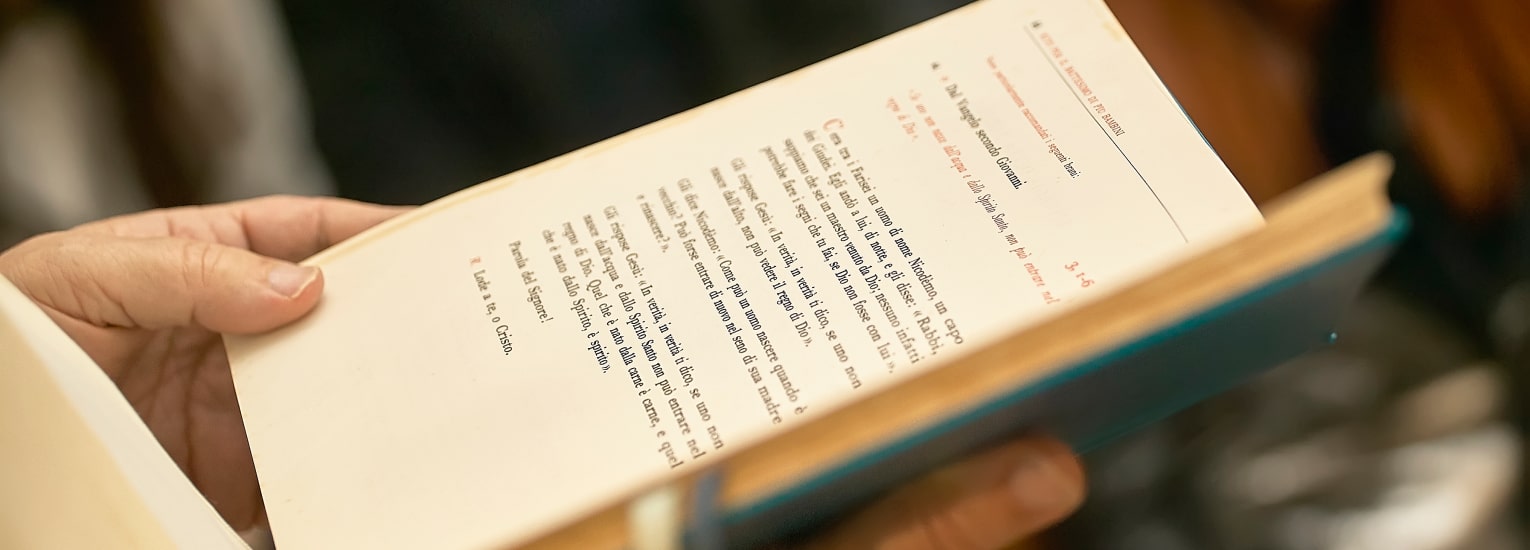 RITO PER IL BATTESIMO DI PIÙ BAMBINI
Sono particolarmente raccomandati i seguenti brani:
Dal Vangelo secondo Giovanni. 3, 1-6
«Se uno non nasce dall'acqua e dallo Spirito Santo, non può entrare nel
regno di Dio».
C'era tra i Farisei un uomo di nome Nicodèmo, un capo
dei Giudei. Egli andò a lui, di notte, e gli disse: « Rabbì,
sappiamo che sei un maestro venuto da Dio; nessuno infatti
potrebbe fare i segni che tu fai, se Dio non fosse con lui ».
Gli rispose Gesù: « In verità, in verità ti dico, se uno non
nasce dall'alto, non può vedere il regno di Dio ».
Gli dice Nicodèmo: « Come può un uomo nascere quando è
vecchio? Può forse entrare di nuovo nel seno di sua madre
e rinascere? ».
Gli rispose Gesù: « In verità, in verità ti dico, se uno non
nasce dall'acqua e dallo Spirito Santo non può entrare nel
regno di Dio. Quel che è nato dalla carne è carne, e quel
che è nato dallo Spirito, è spirito ».
Parola del Signore!
R. Lode a te, o Cristo.